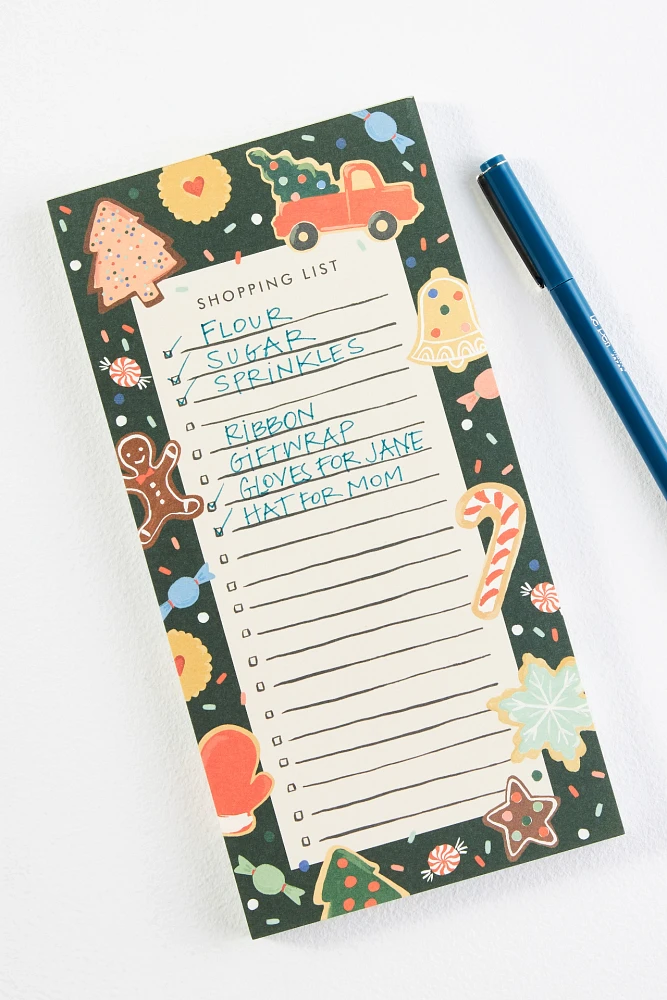 SHOPPING LIST
FLOUR
SUGAR
SPRINKLES
RIBBON
GIFTWRAP
GLOVES FOR JANE
HAT FOR MOM